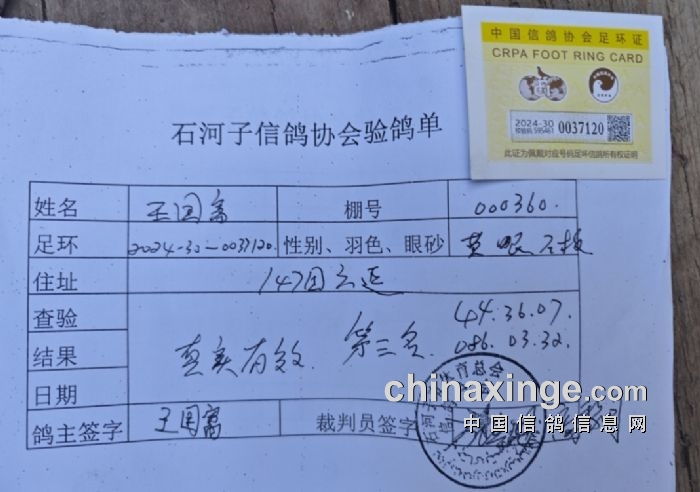 中国信鸽协会足环证
CRPA FOOT RING CARD
2024-30
校验码 595461
0037120
此证为佩戴对应号码足环信鸽所有权证明
石河子信鸽协会验鸽单
姓名 王国富 棚号 000360.
足环 2024-30-0037120. 性别、羽色、眼砂 黄眼
住址 147团
查验 44.36.07.
结果 真实有效. 第三名. 086.03.32.
日期
鸽主签字 王国富 裁判员签字
体育总会
石河子
chinaxinge.com
中国信鸽信息网